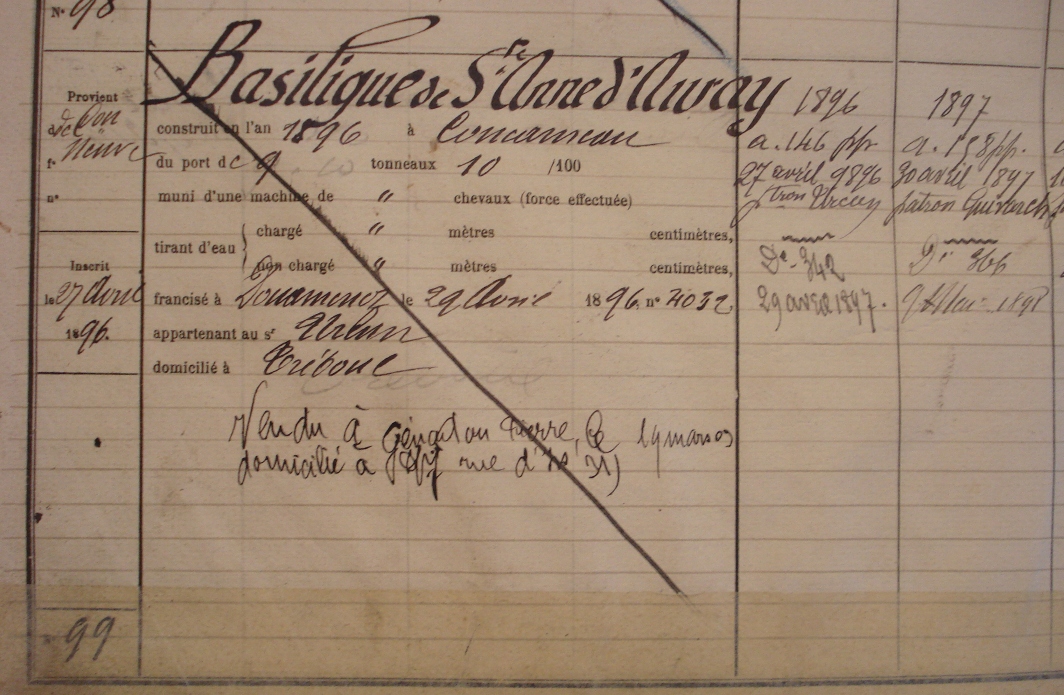 N° 98
Basilique de Ste Anne d'Auray
Provient
f°
n°
Inscrit
le 27 Avril
1896.
construit en l'an 1896 à Concarneau
du port de 9 tonneaux 10 /100
muni d'une machine de " chevaux (force effectuée)
tirant d'eau
chargé " mètres centimètres,
non chargé " mètres centimètres,
francisé à Douarnenez le 29 Avril 1896. n° 4032,
appartenant au sr
domicilié à Tréboul
Vendu à Pierre, le 19 mars 03
domicilié à rue
1896
a. 146 pp
27 avril 1896
Dr - 342
29 avril 1897.
1897
a. 158 pp.
30 avril 1897
patron
Dr 366
1898
99